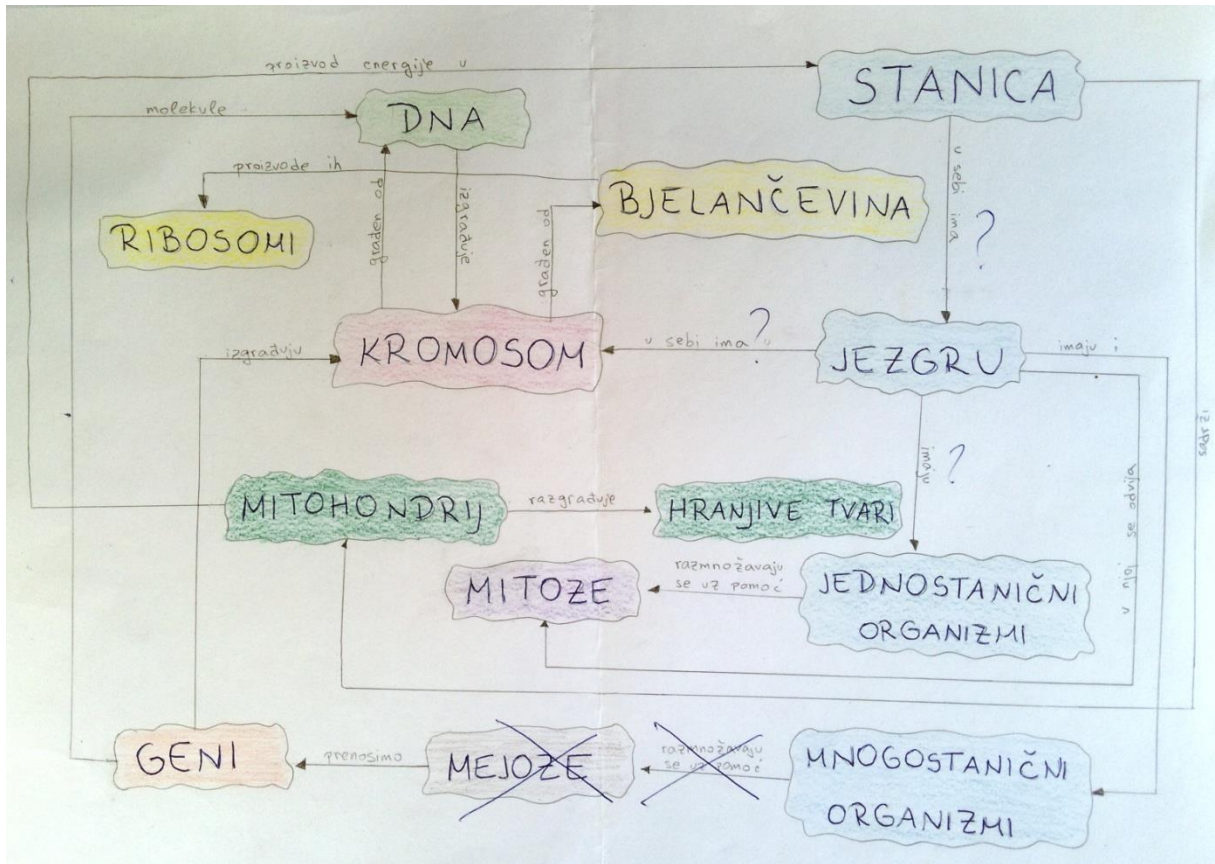 proizvod energije u
STANICA
molekule
DNA
u sebi ima
?
proizvode ih
BJELANČEVINA
RIBOSOMI
građen od
izgrađuje
građen od
izgrađuju
KROMOSOM
u sebi ima
?
JEZGRU
imaju i
sadrži
imaju
?
u njoj se odvija
MITOHONDRIJ
razgrađuje
HRANJIVE TVARI
MITOZE
razmnožavaju
se uz pomoć
JEDNOSTANIČNI
ORGANIZMI
GENI
prenosimo
MEJOZE
razmnožavaju
se uz pomoć
MNOGOSTANIČNI
ORGANIZMI